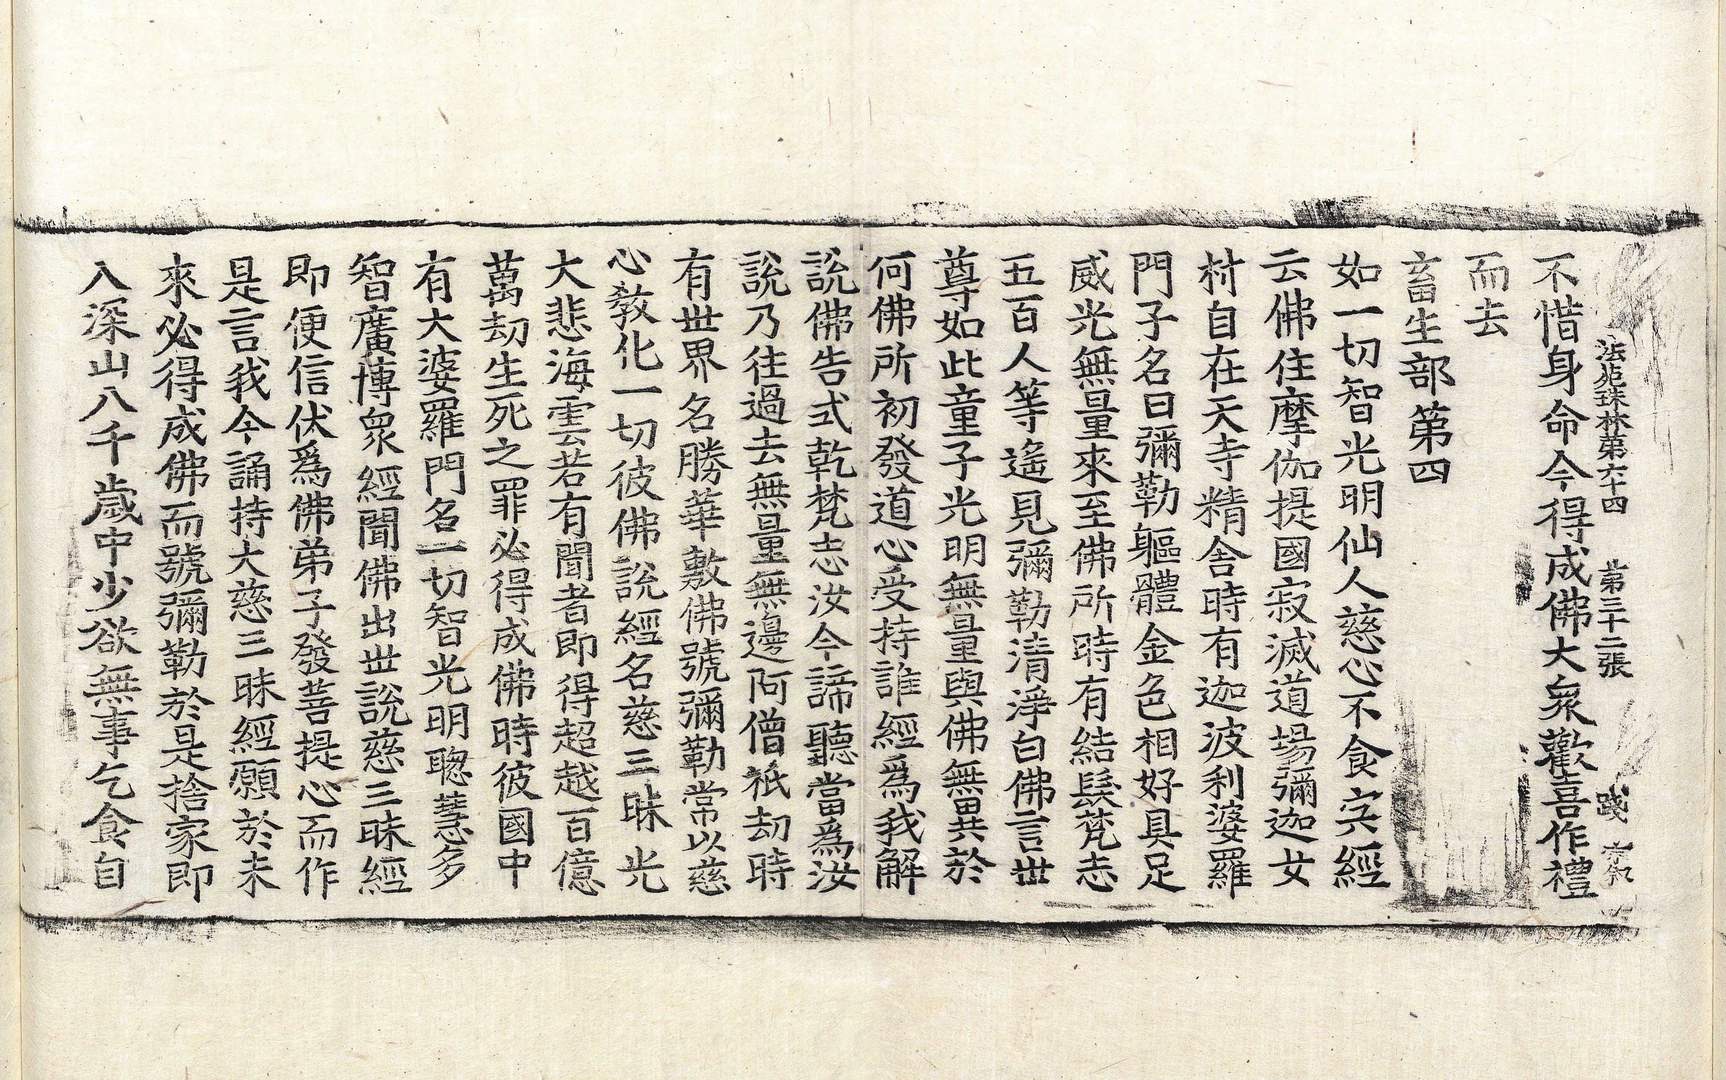 法苑珠林第六十四　第三十二張　踐
不惜身命今得成佛大衆歡喜作禮
而去
畜生部第四
如一切智光明仙人慈心不食宍經
云佛住摩伽提國寂滅道場彌迦女
村自在天寺精舍時有迦波利婆羅
門子名曰彌勒軀體金色相好具足
威光無量來至佛所時有結髮梵志
五百人等遙見彌勒淸淨白佛言世
尊如此童子光明無量與佛無異於
何佛所初發道心受持誰經爲我解
說佛告式乾梵志汝今諦聽當爲汝
說乃往過去無量無邊阿僧祇劫時
有世界名勝華敷佛號彌勒常以慈
心教化一切彼佛說經名慈三昧光
大悲海雲若有聞者即得超越百億
萬劫生死之罪必得成佛時彼國中
有大婆羅門名一切智光明聰慧多
智廣博衆經聞佛出世說慈三昧經
即便信伏爲佛弟子發菩提心而作
是言我今誦持大慈三昧經願於未
來必得成佛而號彌勒於是捨家即
入深山八千歲中少欲無事乞食自